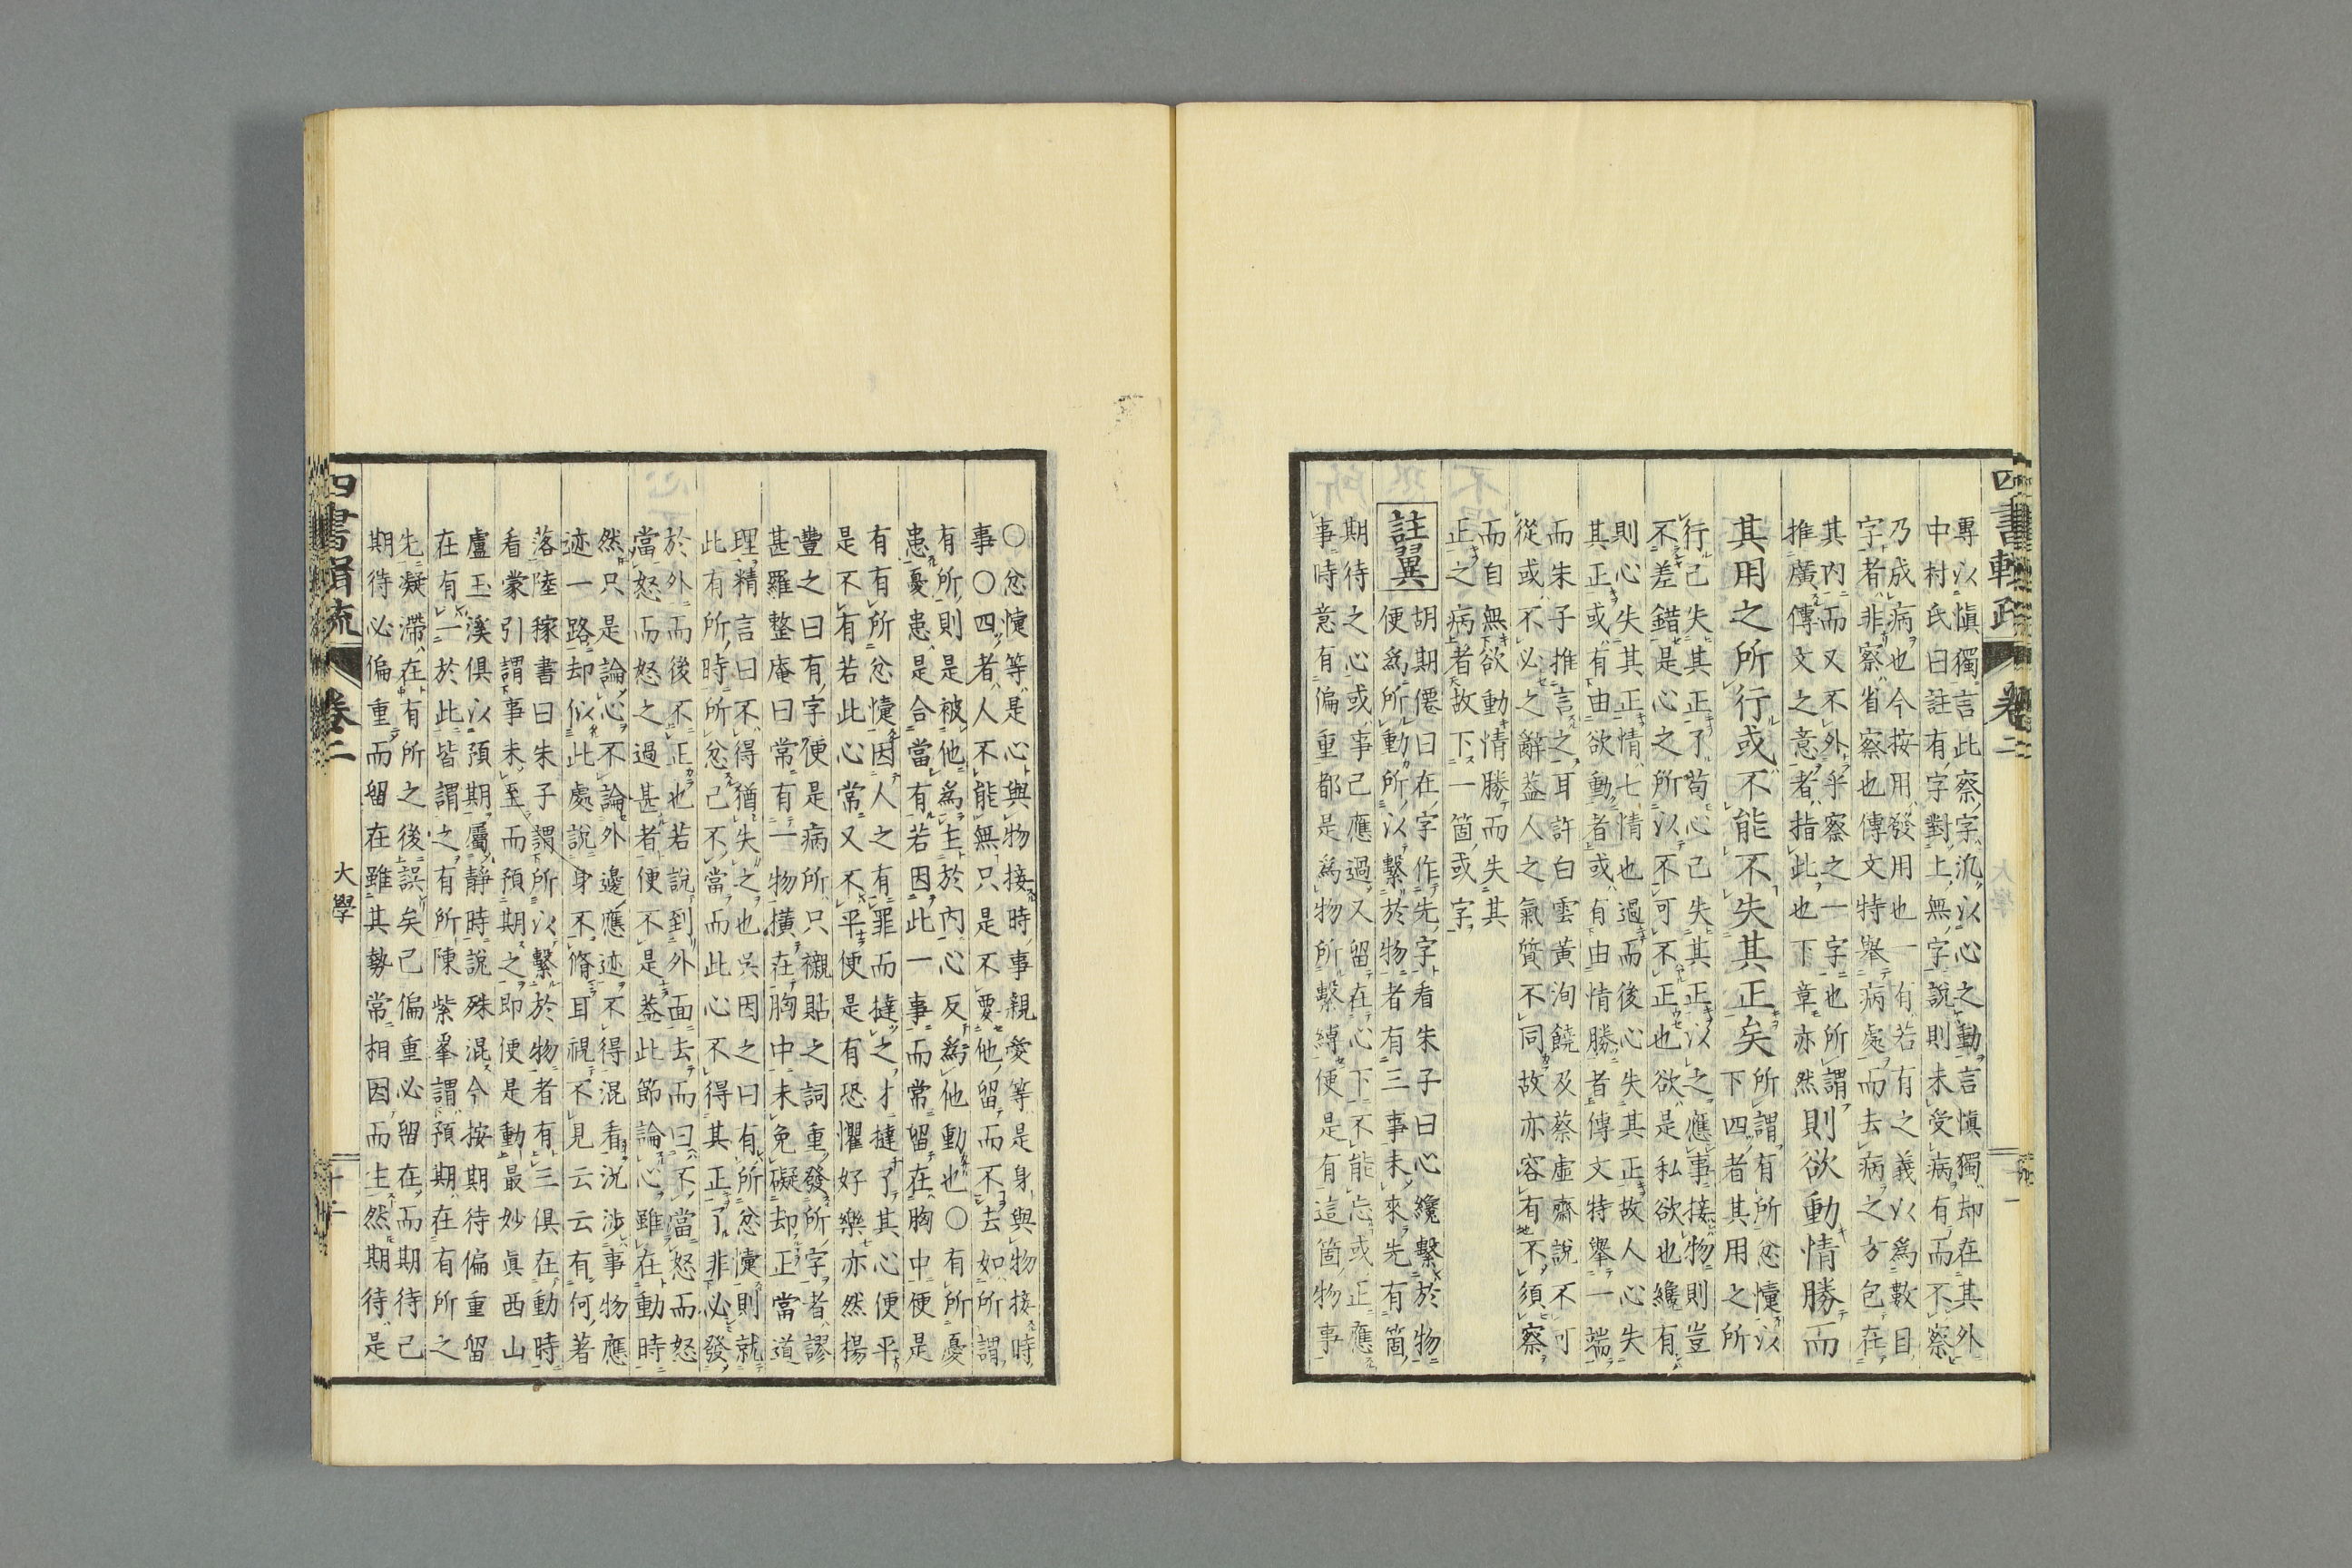 專以愼獨言此察字汎以心之動言愼獨却在其外
中村氏曰註有字對上無字說則未受病有而不察
乃成病也今按用發用也一有若有之義以爲數目
字者非察省察也傳文特舉病處而去病之方包在
其內而又不外乎察之一字也所謂
推廣傳文之意者指此也下章亦然
則欲動情勝而
其用之所行或不能不失其正矣
所謂有所忿懥以
下四者其用之所
行己失其正了苟心己失其正以之應事接物則豈
不差錯是心之所以不可不正也欲是私欲也纔有
則心失其正情七情也過而後心失其正故人心失
其正或有由欲動者或有由情勝者傳文特舉一端
而朱子推言之耳許白雲黃洵饒及蔡虛齋說不可
從或不必之辭蓋人之氣質不同故亦容有不須察
而自無欲動情勝而失其
正之病者故下一箇或字
註翼
胡期僊曰在字作先字看朱子曰心纔繫於物
便爲所動所以繫於物者有三事未來先有箇
期待之心或事己應過又留在心下不能忘或正應
事時意有偏重都是爲物所繫縛便是有這箇物事
四書輯疏
卷二
〇忿懥等是心與物接時事親愛等是身與物接時
事〇四者人不能無只是不要他留而不去如所謂
有所則是被他爲主於內心反爲他動也〇有所憂
患憂患是合當有若因此一事而常留在胸中便是
有有所忿懥因人之有罪而撻之才撻了其心便平
是不有若此心常又不平便是有恐懼好樂亦然揚
豐之曰有字便是病所只襯貼之詞重發所字者謬
甚羅整庵曰常有一物橫在胸中未免礙却正當道
理精言曰不得猶失之也吳因之曰有所忿懥則就
此有所時所忿己不當而此心不得其正了非必發
於外而後不正也若說到外面去而曰不當怒而怒
當怒而怒之過甚者便不是蓋此節論心雖在動時
然只是論心不論外邊應迹不得混看況涉事物應
迹一路却似此處說身不脩耳視不見云云有何著
落陸稼書曰朱子謂所以繫於物者有三俱在動時
看蒙引謂事未至而預期之卽便是動最妙眞西山
盧玉溪俱以預期屬靜時說殊混今按期待偏重留
在有一於此皆謂之有所陳紫峯謂預期在有所之
先凝滯在有所之後誤矣己偏重必留在而期待己
期待必偏重而留在雖其勢常相因而生然期待是
四書輯疏
卷二
大學
十二